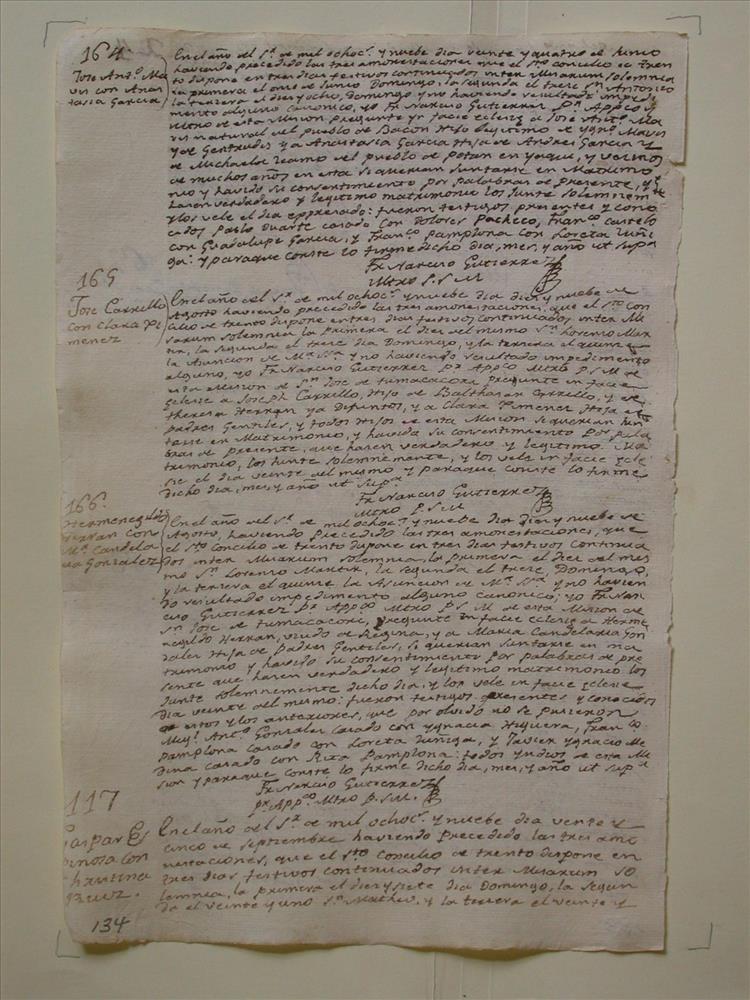 164.
Jose Antº. Ma
vis con Anas
tasia Garcia
En el año del Sr. de mil ochocs. y nuebe dia veinte y quatro de Junio
haviendo precedido las tres amonestaciones que el Sto. concilio de Tren
to dispone en tres dias festivos continuados inter Missarum solemnia
la primera el onse de Junio Domingo, la segunda el trece Sn. Antonio
la tersera el dies y ocho, Domingo y no haviendo resultado impedi
mento alguno canonico, yo Fr. Narciso Gutierrez Pr. Appco. y
Mtro de esta Mision pregunte yn facie eclesie a Jose Antº. Ma
vis natural del pueblo de Bacon Hijo legitimo de ygno. Mavis
y de Gertrudis y a Anastasia Garcia Hija de Andres Garcia y
de Michaela del pueblo de Potan en yaqui, y vecinos
de muchos años en esta si querian juntarse en Matrimo
nio y havido su consentimiento por palabras de presente, q.
hasen verdadero y legitimo matrimonio los junte solemnemte
y los vele el dia expresado: fueron testigos presentes y cono
cidos Pablo Duarte casado con Dolores Pacheco, Franco. Castelo
con Guadalupe Garcia, y Franco. Pamplona con Loreta Zuñi
ga: y paraque conste lo firme dicho dia, mes, y año ut supa
Fr. Narciso Gutierrez
Mtro P. S. M.
165
Jose Carrillo
con Clara Xi
menez
En el año del Sr. de mil ochocs. y nuebe dia dies y nuebe de
Agosto haviendo precedido las tres amonestaciones, que el Sto. Con
cilio de trento dispone en tres dias festivos continuados inter Mi
ssarum solemnia la primera el dies del mismo Sn. Lorenzo Mar
tir, la segunda el trece dia Domingo, y la tersera el quinse
la Asuncion de Ma. Ssa. y no haviendo resultado impedimento
alguno, yo Fr. Narciso Gutierrez Pr. Appco. Mtro P. S. M. de
esta Mision de Sn. Jose de tumacacori pregunte in facie
eclesie a Joseph Carrillo, Hijo de Balthasar Carrillo, y de
theresa Herran ya Difuntos, y a Clara Ximenez Hija de
padres Gentiles, y todos Hijos de esta Mision si querian jun
tarse en Matrimonio, y havido su consentimiento por pala
bras de presente, que hasen verdadero y legitimo Ma
trimonio, los junte solemnemante, y los vele in facie ecle
sie el dia veinte del mismo y paraque conste lo firme
dicho dia, mes, y año ut supa
Fr. Narciso Gutierrez
Mtro P. S. M
166.
Hermenegildo
Herran con
Ma. Candela
ria Gonzalez
En el año del Sr. de mil ochocs. y nuebe dia dies y nuebe de
Agosto, haviendo precedido las tres amonestaciones, que
el Sto. Concilio de trento dispone en tres dias festivos continua
dos inter Missarum solemnia la primera el dies del mes
mo Sn. Lorenzo Martir, la segunda el trese Domingo,
y la tersera el quinse la Asuncion de Ma. Ssa. y no havien
do resultado impedimento alguno canonico; yo Fr. Nar
ciso Gutierrez Pr. Appco. Mtro P. S. M de esta Mision de
Sn. Jose de tumacacori, pregunte in facie eclesie a Herme
negildo Herran, viudo de Regina, y a Maria Candelaria Gon
zalez Hija de Padres Gentiles, si querian juntarse en ma
trimonio y havido su consentimiento por palabras de pre
sente que hasen verdadero y legitimo matrimonio los
junte solemnemente dicho dia, y los vele in facie eclesie
dia veinte del mismo: fueron testigos presentes y conocidos
de estos y los anteriores, que por olvido no se pusieron
Migl. Antº. Gonzales casado con ygnacia Higuera, Franco.
Pamplona casado con Loreta Zuñiga, y Javier ygnacio Me
dina casado con Rita Pamplona: todos yndios de esta Mi
sion y paraque conste lo firme dicho dia, mes, y año ut supa
Fr. Narciso Gutierrez
Pr. Appco. Mtro P. S. M.
117
Gaspar Es
pinosa con
Christina
Ruiz.
En el año del Sr. de mil ochocs. y nuebe dia vente y
cinco de septiembre haviendo precedido las tres amo
nestaciones, que el Sto concilio de trento dispone en
tres dias festivos continuados inter Missarum so
lemnia, la primera el dies y siete dia Domingo, la segun
da el veinte y uno Sn. Matheo, y la tersera el veinte y
134